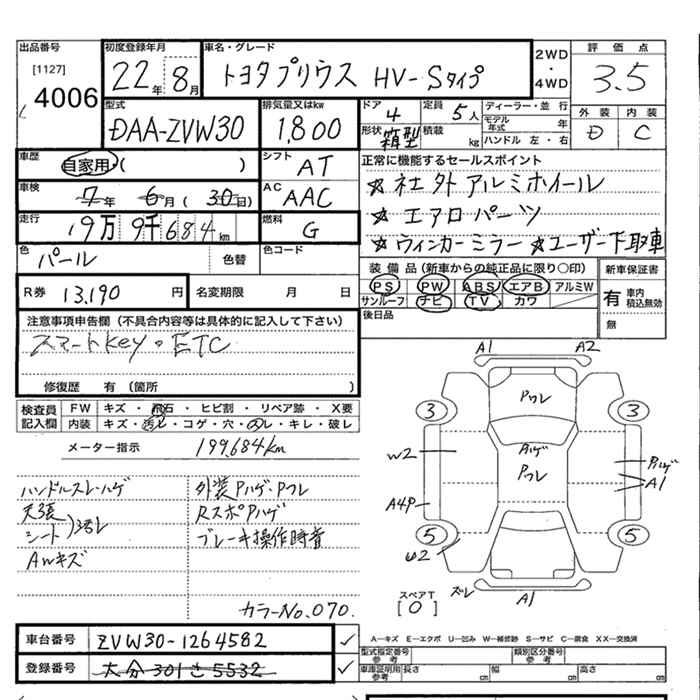 出品番号
[1127]
4006
初度登録年月
22年 8月
車名・グレード
トヨタプリウス HV-Sタイプ
2WD
・
4WD
評価点
3.5
外装 内装
D C
型式
DAA-ZVW30
排気量又はkw
1,800
ドア
4
定員
5人
形状
箱型
積載
kg
ディーラー・並行
モデル年式 年
ハンドル 左・右
車歴
自家用 ( )
シフト
AT
車検
7年 6月 (30日)
AC
AAC
走行
19万 9千 684 km
燃料
G
色
パール
色替
色コード
正常に機能するセールスポイント
☆社外アルミホイール
☆エアロパーツ
☆ウィンカーミラー ☆ユーザー下取車
装備品 (新車からの純正品に限り○印)
PS PW ABS エアB アルミW
サンルーフ ナビ TV カワ
後日品
新車保証書
有 車内 積込無効
無
R券 13,190 円
名変期限 月 日
注意事項申告欄 (不具合内容等は具体的に記入して下さい)
スマートKey・ETC
修復歴 有 (箇所 )
検査員記入欄
FW キズ・飛石・ヒビ割・リペア跡・X要
内装 キズ・汚レ・コゲ・穴・のレ・キレ・破レ
メーター指示 199,684km
ハンドルスレ・ハゲ
天張
シート )汚レ
AWキズ
外装Pハゲ・Pフレ
RスポPハゲ
ブレーキ操作時音
カラーNo,070.
A1 A2
Pフレ
3 3
W2
Pハゲ
Pフレ
Pハゲ
A1
A4P
5 5
W2
ズレ A1
スペアT
[0]
A―キズ E―エクボ U―凹み W―補修跡 S―サビ C―腐食 XX―交換済
車台番号 ZVW30-1264582 ✓
登録番号 大分 301 さ 5532 ✓
型式指定番号 参考
類別区分番号 参考
車庫証明用 参考 長さ cm 幅 cm 高さ cm